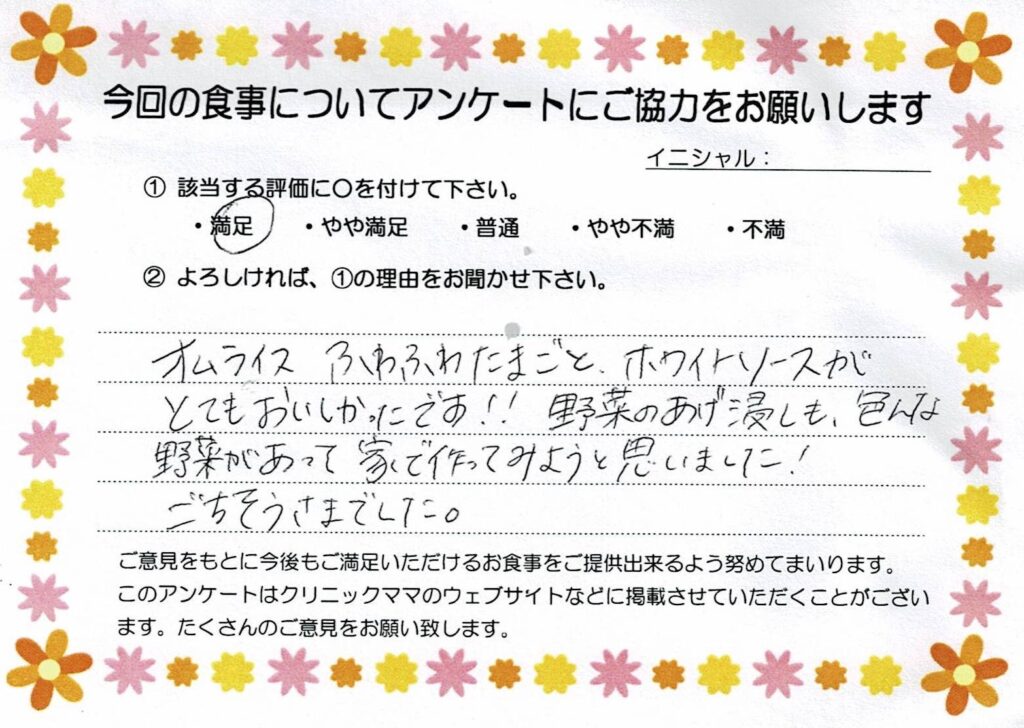 今回の食事についてアンケートにご協力をお願いします
イニシャル：
① 該当する評価に〇を付けて下さい。
・満足 ・やや満足 ・普通 ・やや不満 ・不満
② よろしければ、①の理由をお聞かせ下さい。
オムライス ふわふわたまごと、ホワイトソースが
とてもおいしかったです!! 野菜のあげ浸しも、色んな
野菜があって 家で作ってみようと思いました!
ごちそうさまでした。
ご意見をもとに今後もご満足いただけるお食事をご提供出来るよう努めてまいります。
このアンケートはクリニックママのウェブサイトなどに掲載させていただくことがござい
ます。たくさんのご意見をお願い致します。